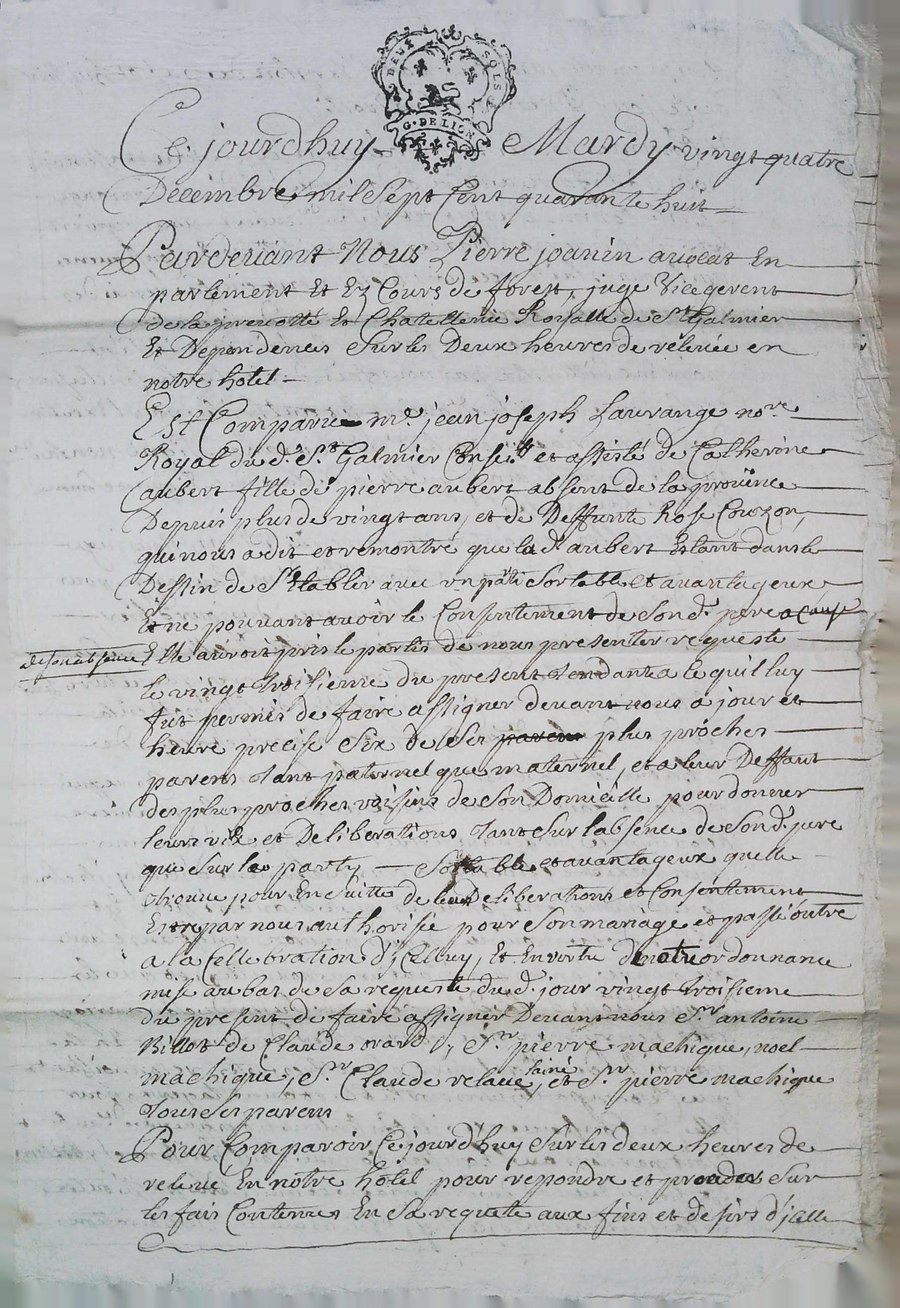 DEUX SOLS
G. DE LION
Ce jourdhuy Mardy vingt quatre
Decembre mil Sept Cent quarante huit
Pardevant Nous Pierre joanin avocat En
parlement Et Ez Cours de forest, juge Vicegerent
de la prevotté Et Chatellenie Royalle de St Galmier
Et Dependences Sur les Deux heures de relevée en
notre hotel
Est Comparu me jean joseph Laurange nore
Royal du d. St Galmier Conseil et assisté de Catherine
aubert fille de pierre aubert absent de la province
Depuis plus de vingt ans, et de Deffunte Rose Couzon,
qui nous a dit et remontré que la d. aubert Estant dans le
Dessin de S'Etablir avec un party Sortable et avantageux
Et ne pouvant avoir le Consentement de Son d. pere a cause
de son absence Elle auroit pris le partis de nous presenter requeste
le vingt troisieme du present tendante a le quil luy
fut permis de faire assigner devant nous a jour et
heure precise Six de Ses parens plus proches
parens tant paternel que maternel, et a leur Deffaut
des plus proches voisins de Son Domicille pour donner
leurs vix et Deliberations tant Sur labsence de Son d. pere
que Sur le party Sortable et avantageux quelle
trouve pour En Suitte de leurs deliberations et Consentement
Estre par nous authorisée pour Son mariage et passé outre
a la Cellebration d'jcelluy, Et En vertu de notre ordonnance
mise au bas de Sa requeste du d. jour vingt troisieme
du present de faire assigner Devant nous Sr antoine
Billot de Claude orard, Sr pierre machique, noel
machique, Sr Claude relave lainé, et Sr pierre machique
tous Ses parens
Pour Comparoir Ce jourd'huy Sur les deux heures de
relevé En notre hotel pour repondre et proceder Sur
les fais Contenus En Sa requete aux fins et desirs d'jcelle